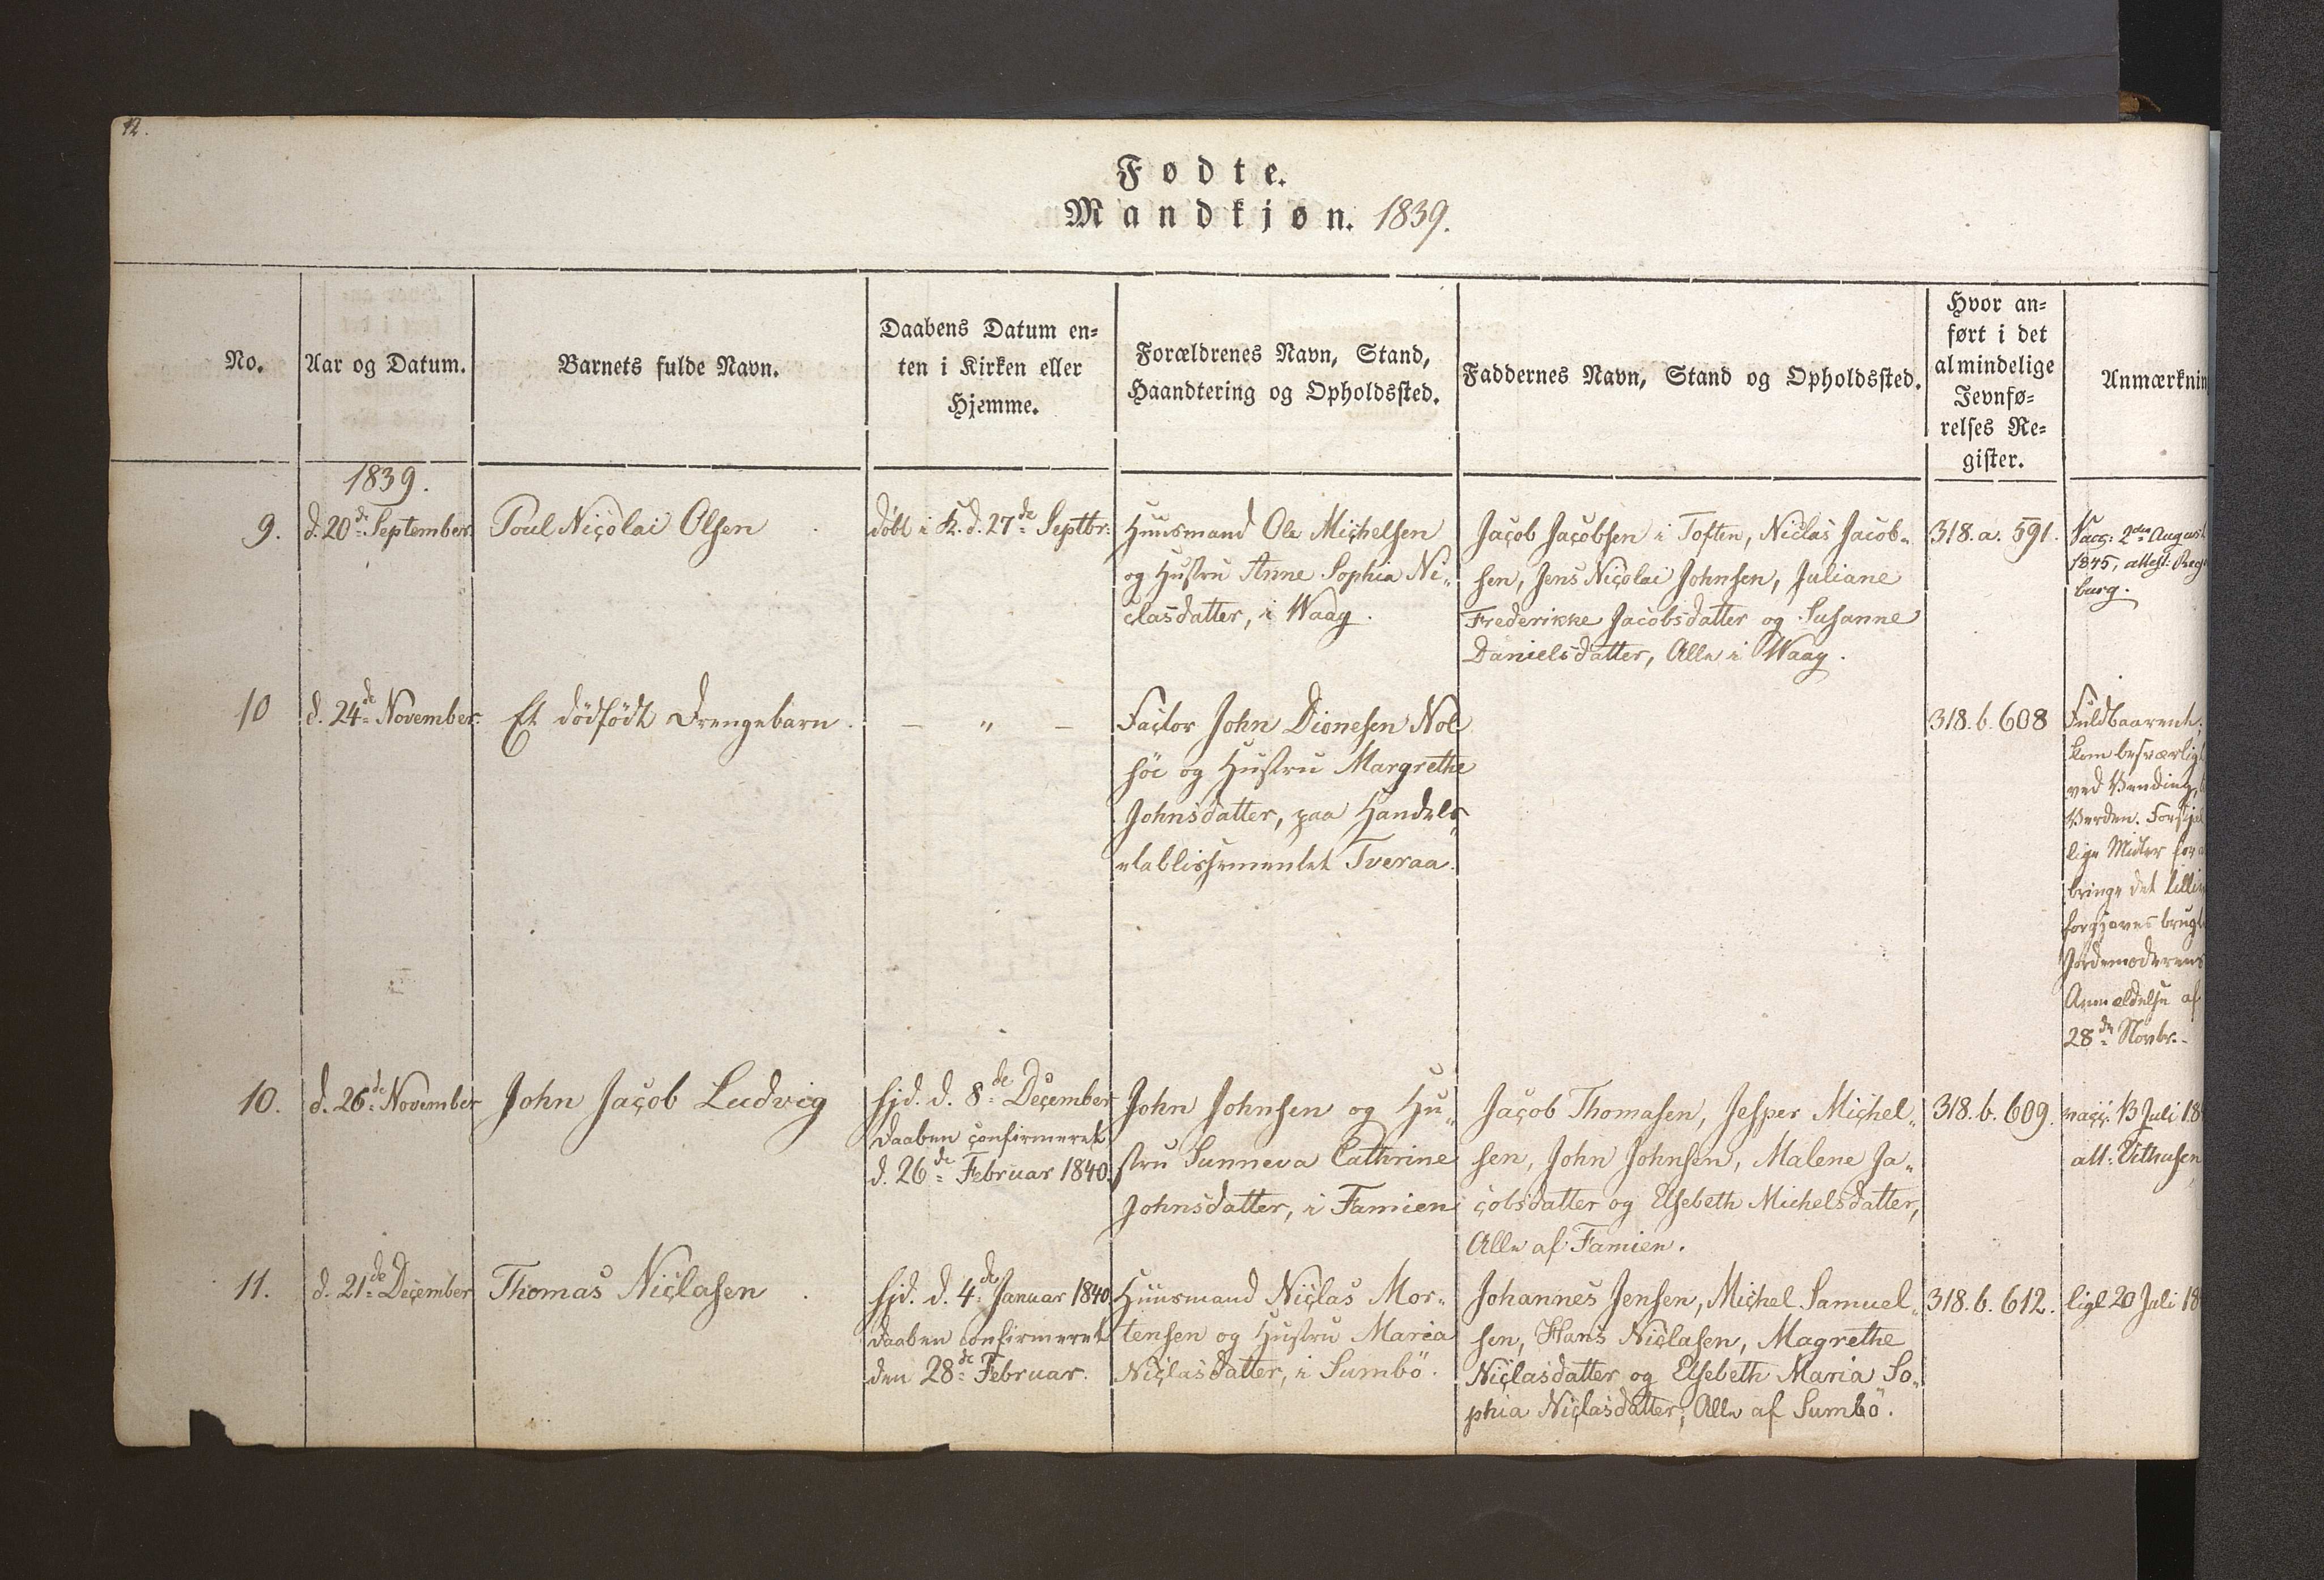 12.
Fødte.
Mandkjøn. 1839.
No.
Aar og Datum.
Barnets fulde Navn.
Daabens Datum en=
ten i Kirken eller
Hjemme.
Forældrenes Navn, Stand,
Haandtering og Opholdssted.
Faddernes Navn, Stand og Opholdssted.
Hvor an=
ført i det
almindelige
Jevnfø=
relses Re=
gister.
Anmærknin
1839.
9.
d. 20de September.
Poul Nicolai Olsen
døbt i K. d. 27de Septbr:
Huusmand Ole Michelsen
og Hustru Anne Sophia Ni„
clasdatter, i Waag.
Jacob Jacobsen i Toften, Niclas Jacob„
sen, Jens Nicolai Johnsen, Juliane
Frederikke Jacobsdatter og Susanne
Danielsdatter, Alle i Waag.
318. a. 591.
Vacc: 2den August
1845, attest: Reg
burg.
10
d. 24de November.
Et dödfödt Drengebarn.
— „ —
Factor John Dionesen Nol
söe og Hustru Margrethe
Johnsdatter, paa Handels
etablissementet Tveraa.
318. b. 608
Fuldbaarent;
kom besværligt
ved Vending,
Verden. Forskjel
lige Midler for a
bringe det tilliv
forgjæves brugt
Jordemoderens
Anmældelse af
28de Novbr.-
10.
d. 26de November
John Jacob Ludvig
hjd. d. 8de December
Daaben confirmeret
d. 26de Februar 1840.
John Johnsen og Hu„
stru Sunneva Cathrine
Johnsdatter, i Famien
Jacob Thomasen, Jesper Michel„
sen, John Johnsen, Malene Ja„
cobsdatter og Elsebeth Michelsdatter,
Alle af Famien.
318. b. 609.
vacc. 13 Juli 18
att:
11.
d. 21de December
Thomas Niclasen
hjd. d. 4de Januar 1840
Daaben confirmeret
den 28de Februar.
Huusmand Niclas Mor„
tensen og Hustru Maria
Niclasdatter, i Sumbö.
Johannes Jensen, Michel Samuel„
sen, Hans Niclasen, Magrethe
Niclasdatter og Elsebeth Maria So„
phia Niclasdatter, Alle af Sumbö.
318. b. 612.
ligl 20 Juli 18